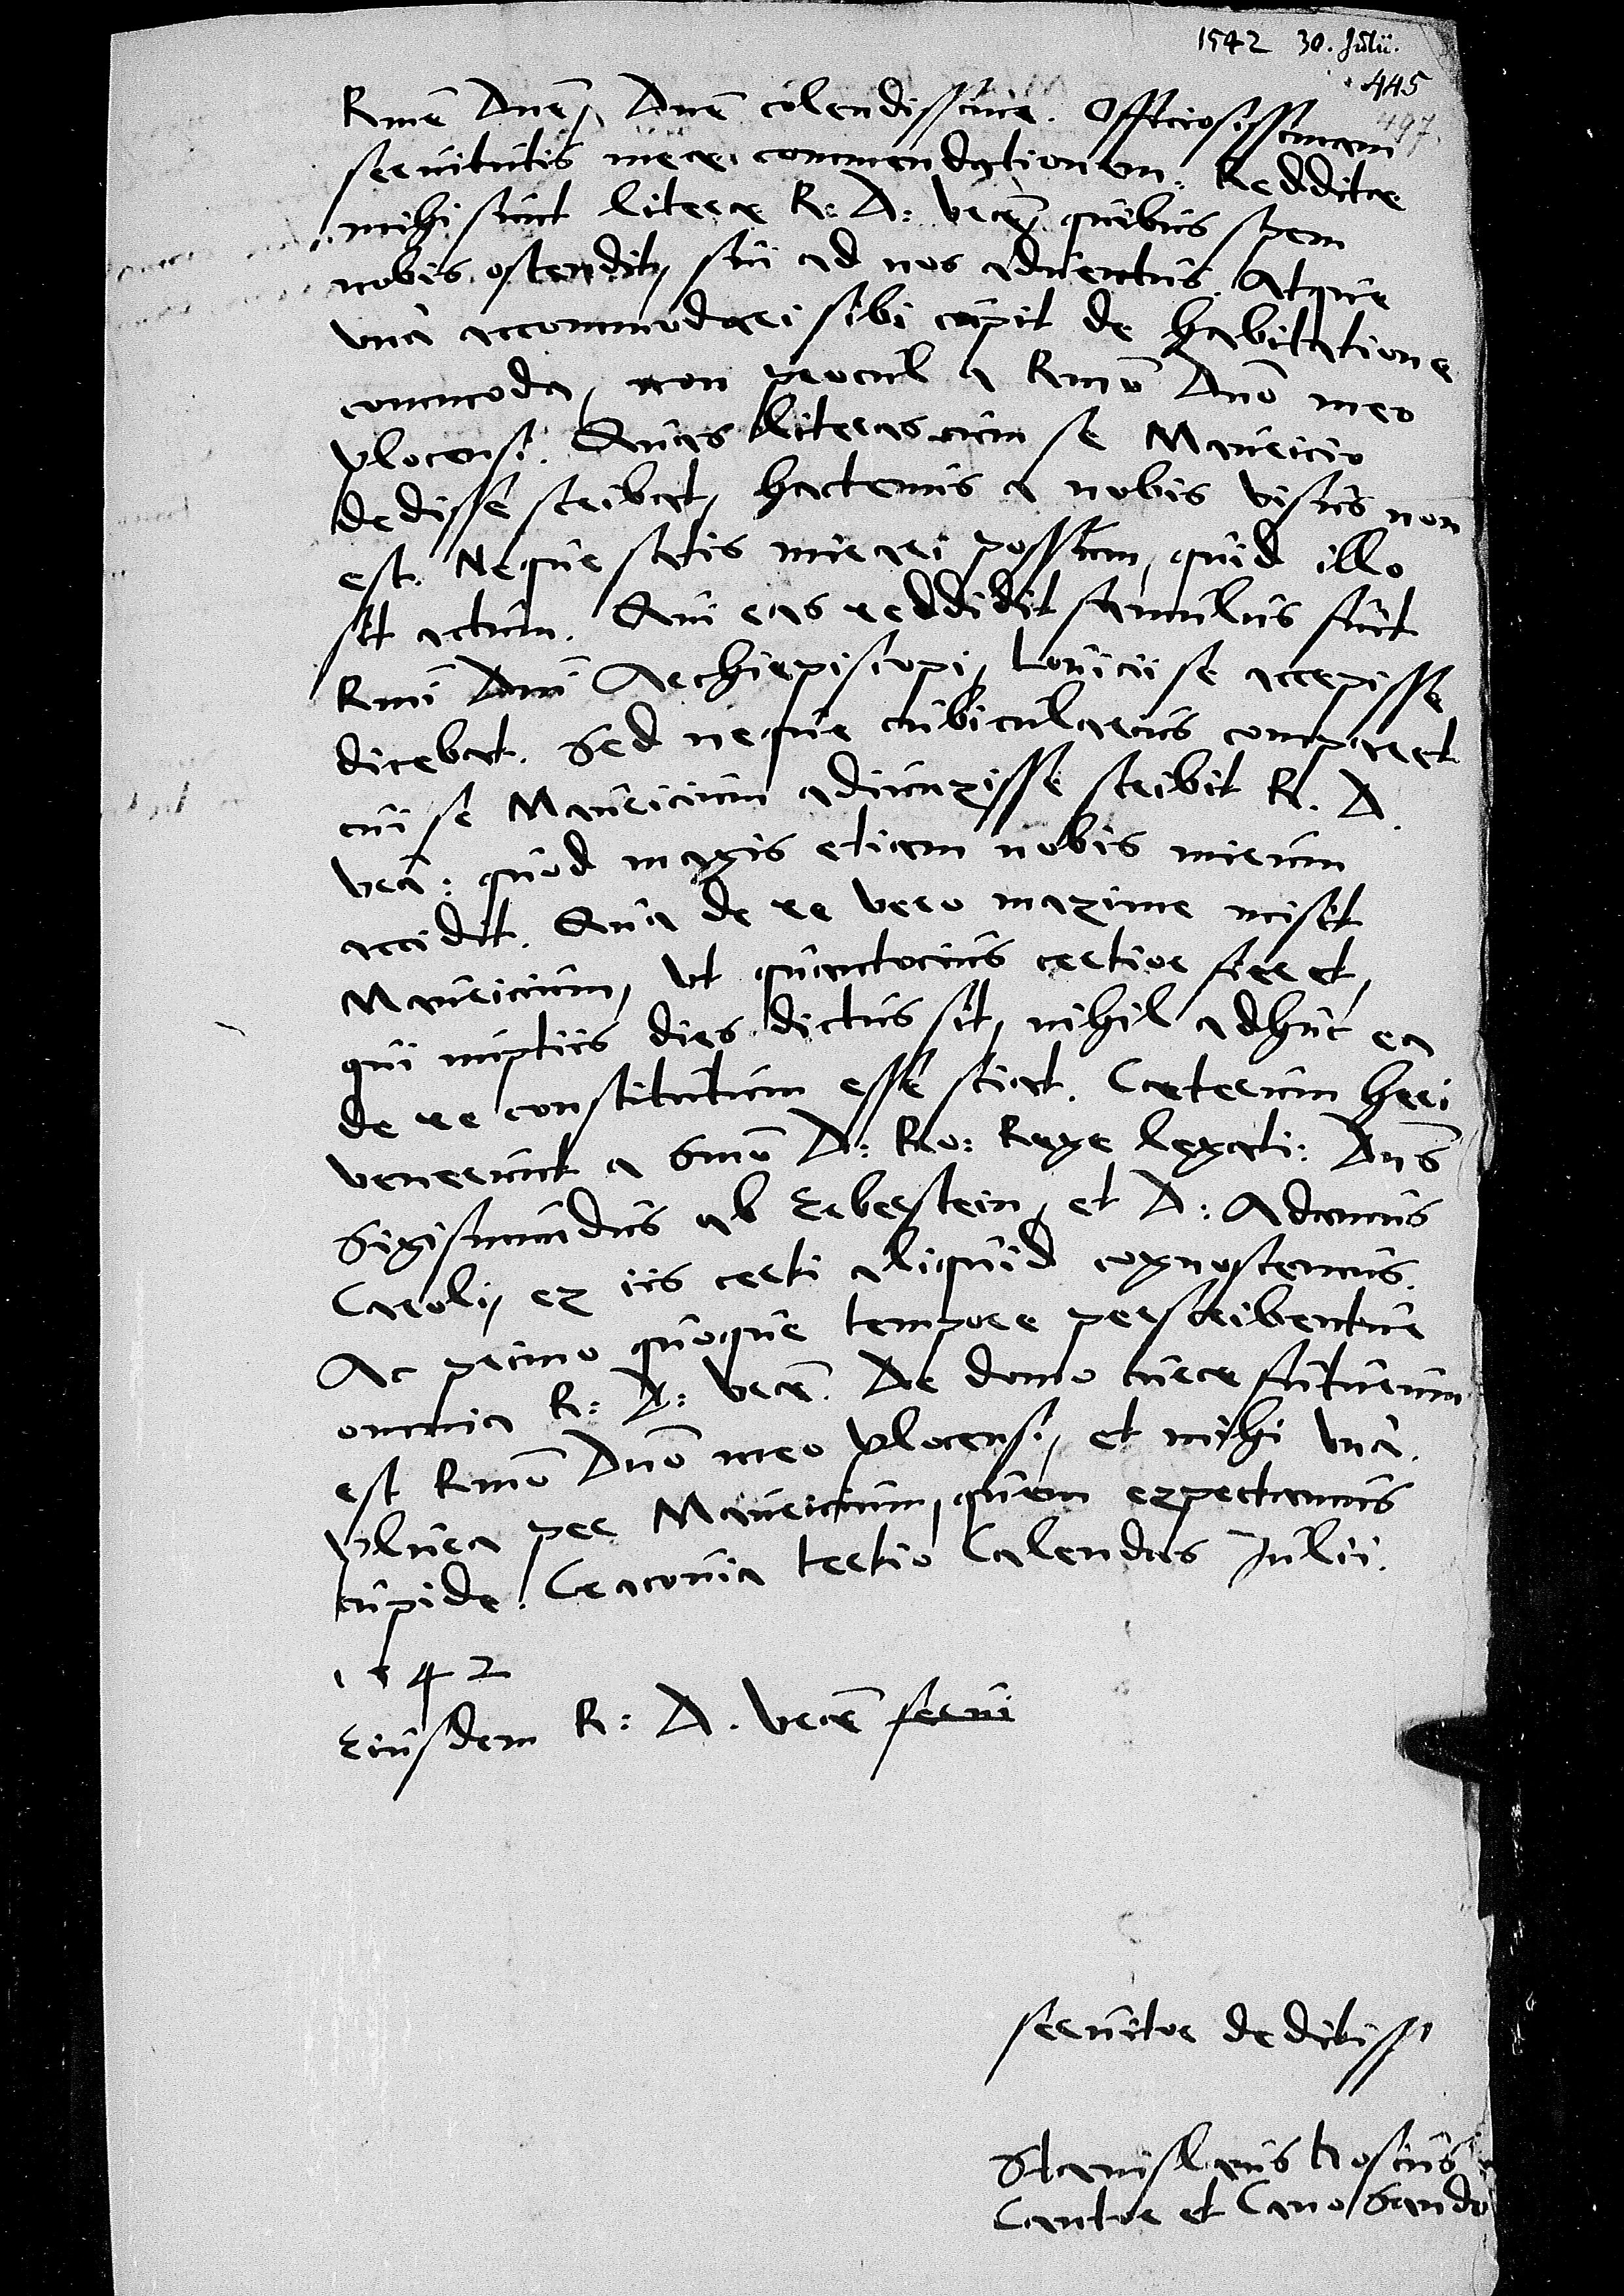 1542 30. Julii.
445
497.
Rme Dne, Dne colendissime. Officiosissimam
seruitutis meae commendationem. Redditae
mihi sunt literae R: D: Vrae, quibus spem
nobis ostendit, sui ad nos aduentus. Atque
vna accommodari sibi cupit de habitatione
commoda, non procul a Rmo Dno meo
Plocensi. Quas literas cum se Mauricio
dedisse scribat, hactenus a nobis visus non
est. Neque satis mirari possum, quid illo
sit actum. Qui eas reddidit famulus fuit
Rmi Dni Archiepiscopi, Louicii se accepisse
dicebat. Sed neque cubicularius comparet
cui se Mauricium adiunxisse scribit R. D.
Vra: quod magis etiam nobis mirum
accidit. Qua de re vero maxime misit
Mauricium, vt quantocius certior fieret,
qui nuptiis dies dictus sit, nihil adhuc ea
de re constitutum esse sciat. Caeterum heri
venerunt a Smo D: Ro: Rege legati: Dns
Sigismundus ab Erberstein, et D: Adamus
Caroli, ex iis certi aliquid cognoscemus.
Ac primo quoque tempore perscribentur
omnia R: D: Vrae. De domo curae futurum
est Rmo Dno meo Plocensi, et mihi vna.
Plura per Mauricium, quem expectamus
cupide. Cracouia tertio Calendas Julii.
1542
Eiusdem R: D. Vrae serui
seruitor deditiss
Stanislaus Hosius
Cantor et Cano Sando